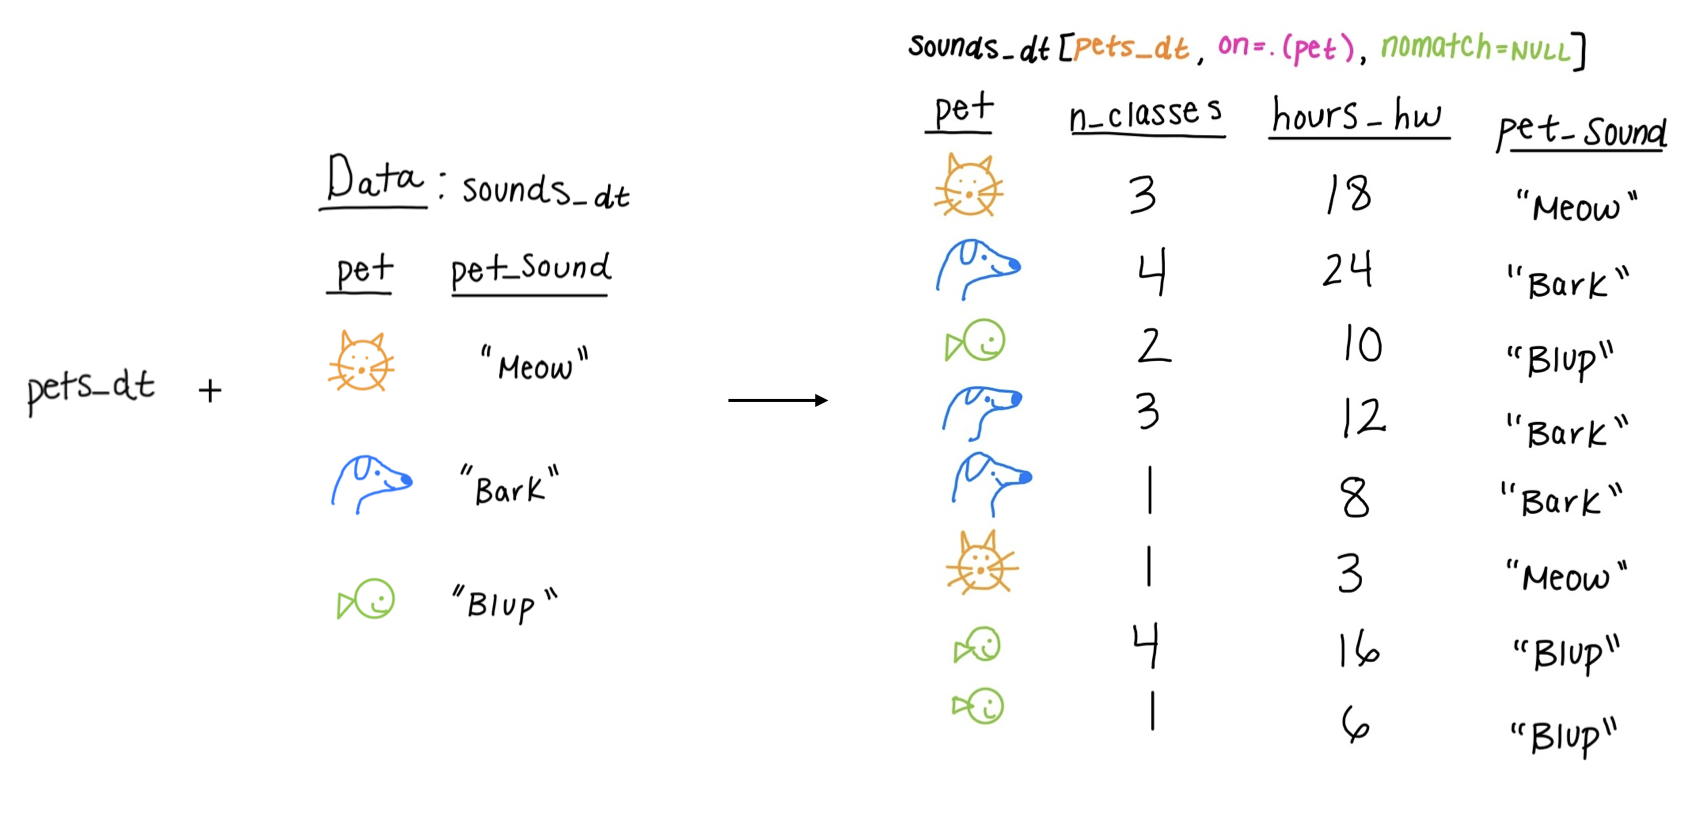 pets_dt +
Data: sounds_dt
pet pet_sound
"Meow"
"Bark"
"Blup"
sounds_dt[pets_dt, on=.(pet), nomatch=NULL]
pet n_classes hours_hw pet_sound
3 18 "Meow"
4 24 "Bark"
2 10 "Blup"
3 12 "Bark"
1 8 "Bark"
1 3 "Meow"
4 16 "Blup"
1 6 "Blup"